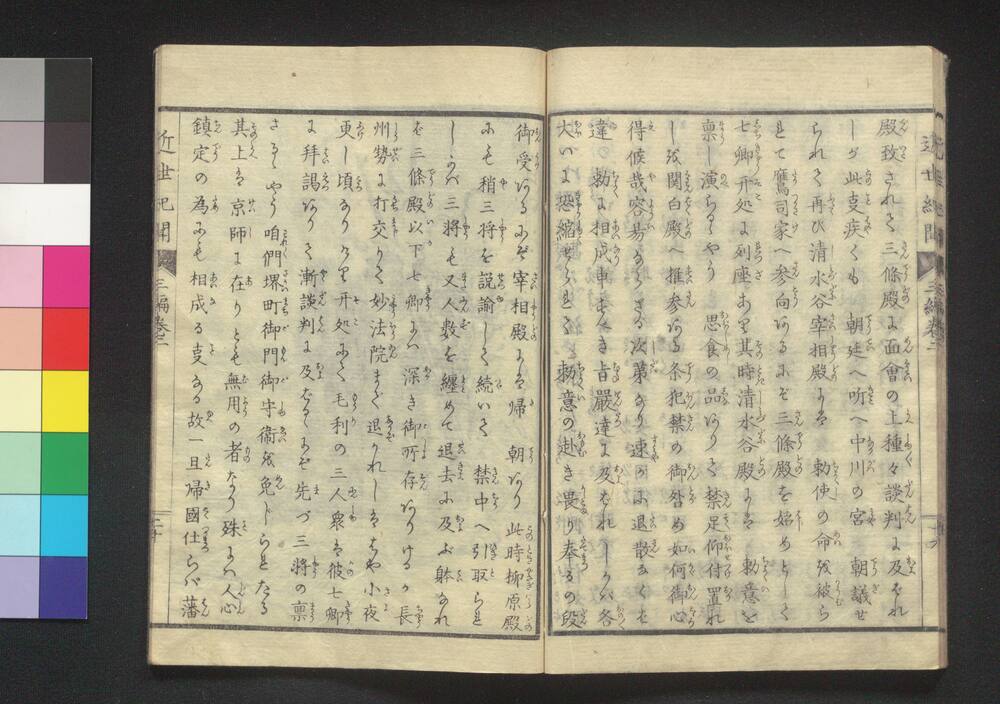 近世紀聞 三編巻二
殿致されて三條殿に面會の上種々談判に及ばれ
しが此叓疾くも 朝廷へ聞へ中川の宮 朝議せ
られて再び清水谷宰相殿には 勅使の命を彼ら
とて鷹司家へ参向ありるにぞ三條殿を始めとして
七卿并処に列座あり其時清水谷殿には 勅意を
禀し演らるやう 思食の品ありて禁足仰付置れ
しを関白殿へ推参ある条犯禁の御咎め如何御心
得候哉容易ならざる次第なり速かに退散なくば
違 勅に相成申すべき旨嚴達に及ばれしかバ各
大いに恐縮せられて 勅意の赴き畏り奉るの段
御受ありにぞ宰相殿には帰 朝あり 此時柳原殿
にも稍三将を説諭して続いて 禁中へ引取られ
しかバ三将も又人数を纏めて退去に及ぶ躰なれ
ば三條殿以下七卿にハ深き御所存ありけるか長
州勢に打交りて妙法院まで退かれしははや小夜
更し頃なりけり并処にて毛利の三人衆は彼七卿
に拜謁ありて漸談判に及ばるるに先づ三将の禀
さるるやう咱們堺町御門御守衞を免じられたる
其上は京師に在りとも無用の者なり殊にハ人心
鎮定の為にも相成る叓なる故一旦帰國仕らバ藩
近世紀聞 三編巻二